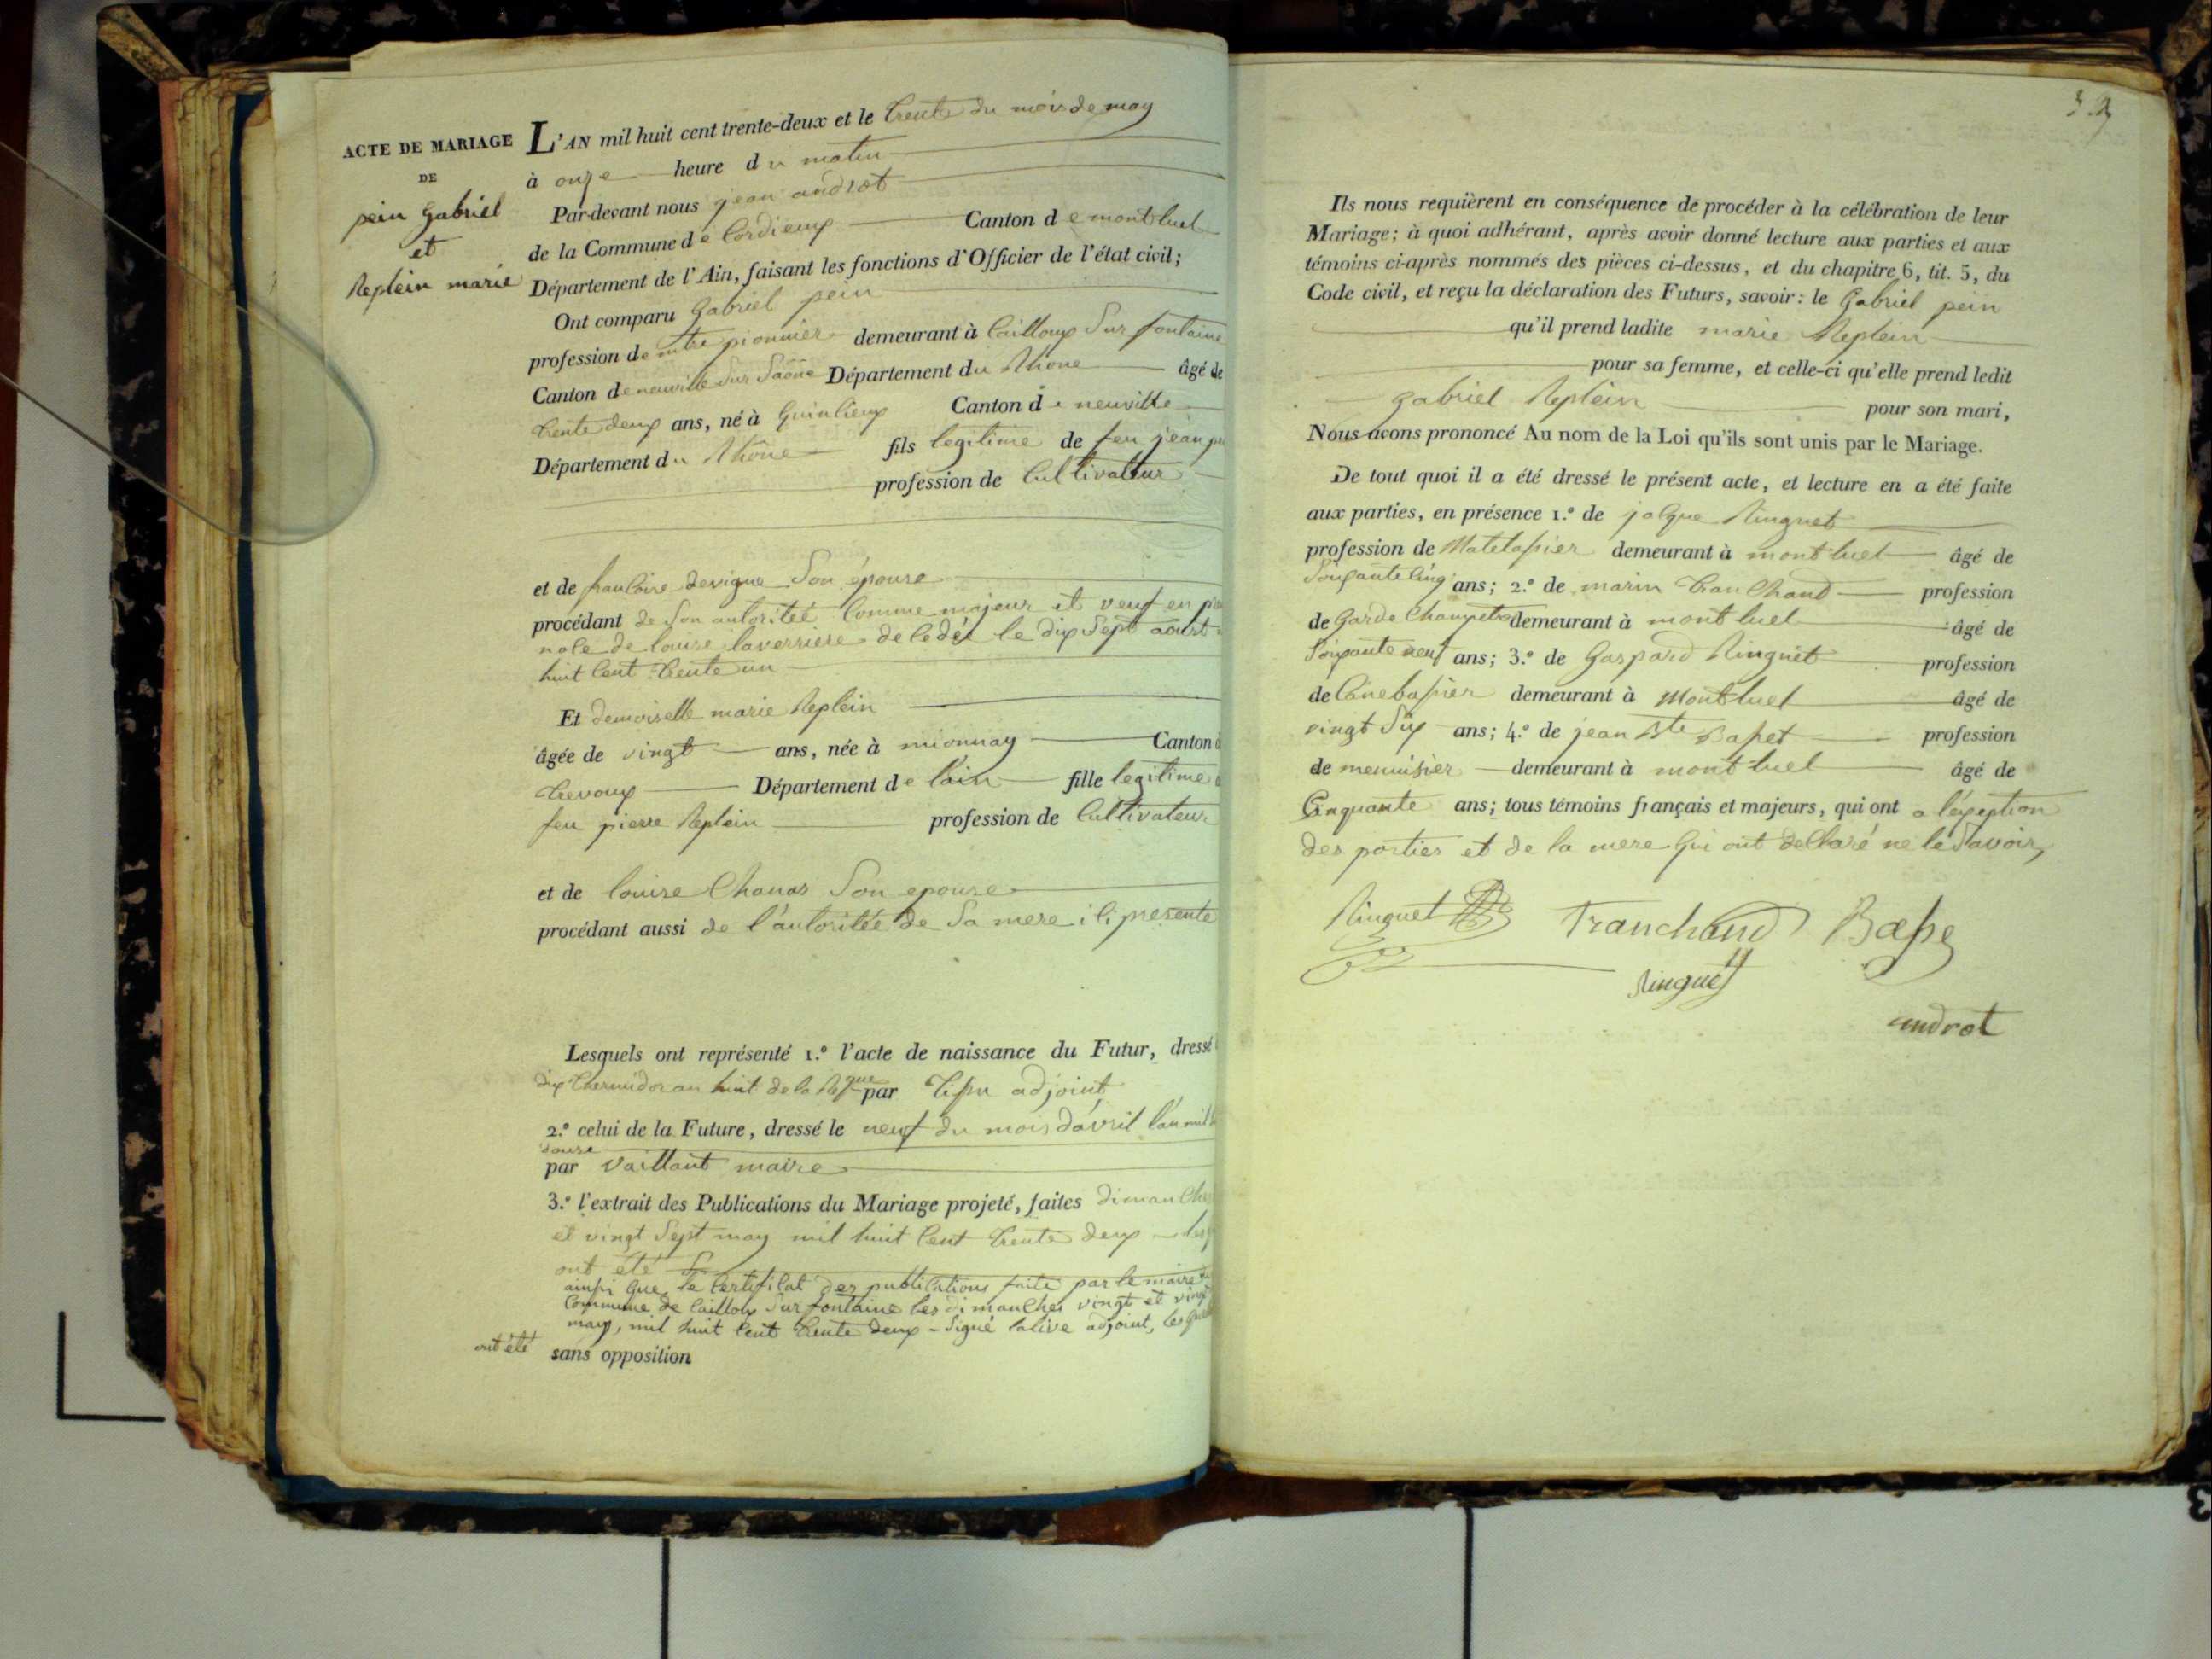 ACTE DE MARIAGE
DE
pein Gabriel
et
Replein marie
L'AN mil huit cent trente-deux et le trente du mois de may
à onze heure du matin
Par-devant nous jean androt
de la Commune de Cordieux Canton de montluel
Département de l'Ain, faisant les fonctions d'Officier de l'état civil;
Ont comparu Gabriel pein
profession de mtre pionnier demeurant à Cailloux Sur fontaine
Canton de neuville Sur Saône Département du Rhône âgé de
trente deux ans, né à Quinlieux Canton de neuville
Département du Rhône fils legitime de feu jean
profession de Cultivateur
et de francoise devigne Son épouse
procédant de Son autoritée Comme majeur et veuf en
de louise laverriere de le dix Sept aoust
huit Cent trente un
Et demoiselle marie Replein
âgée de vingt ans, née à mionnay Canton
trevoux Département de l'ain fille legitime
feu pierre Replein profession de Cultivateur
et de louise Chanas Son epouse
procédant aussi de l'autoritée de Sa mere ici presente
Lesquels ont représenté 1.º l'acte de naissance du Futur, dressé
dix thermidor an huit de la Rpque par adjoint
2.º celui de la Future, dressé le neuf du mois d'avril l'an mil
douze
par vaillant maire
3.º l'extrait des Publications du Mariage projeté, faites dimanche
et vingt Sept may mil huit Cent trente deux
ont été
ainsi que le Certificat des publications faite par le maire
Commune de Cailloux Sur fontaine les dimanches vingt et vingt
may, mil huit Cent trente deux - Signé lalive adjoint,
ont été sans opposition
Ils nous requièrent en conséquence de procéder à la célébration de leur
Mariage; à quoi adhérant, après avoir donné lecture aux parties et aux
témoins ci-après nommés des pièces ci-dessus, et du chapitre 6, tit. 5, du
Code civil, et reçu la déclaration des Futurs, savoir: le Gabriel pein
qu'il prend ladite marie Replein
pour sa femme, et celle-ci qu'elle prend ledit
gabriel Replein pour son mari,
Nous avons prononcé Au nom de la Loi qu'ils sont unis par le Mariage.
De tout quoi il a été dressé le présent acte, et lecture en a été faite
aux parties, en présence 1.º de jacque Ringuet
profession de Matelassier demeurant à montluel âgé de
Soixante Cinq ans; 2.º de marin tranchand profession
de Garde Champetre demeurant à montluel âgé de
Soixante neuf ans; 3.º de Gaspard Ringuet profession
de demeurant à Montluel âgé de
vingt Six ans; 4.º de jean Bte Basset profession
de menuisier demeurant à montluel âgé de
Cinquante ans; tous témoins français et majeurs, qui ont a l'exeption
des parties et de la mere qui ont declaré ne le Savoir,
Ringuet Tranchand Basse
Ringuet
androt